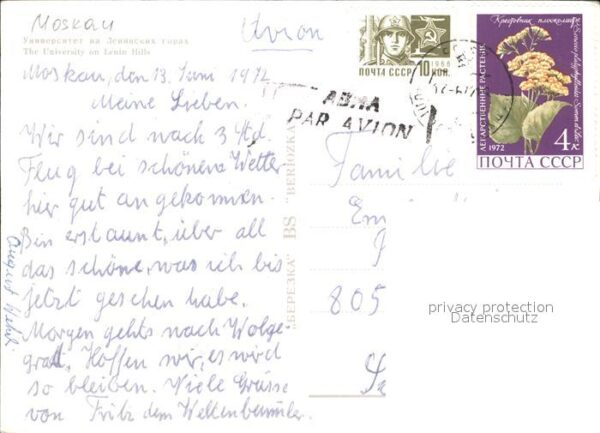 Moskau
Университет на Ленинских горах
The University on Lenin Hills
Avion
Moskau, den 13. Juni 1972
Meine Lieben.
Wir send nach 3 Std.
Flug bei schönem Wetter
hier gut angekommen.
Bin erstaunt, über all
das schöne, was ich bis
jetzt gesehen habe.
Morgen gehts nach Wolge-
grad. Hoffen wir, es wird
so bleiben. Viele Grüsse
von Fritz dem Weltenbummler.
August
"БЕРЕЗКА" BS "BERIOZKA"
ПОЧТА СССР 10 КОП.
1966
АВИА
PAR AVION
Крестовник плосколистный
Senecio platyphylloides
ЛЕКАРСТВЕННЫЕ РАСТЕНИЯ
1972
4к
ПОЧТА СССР
Familie
Em
805
privacy protection
Datenschutz